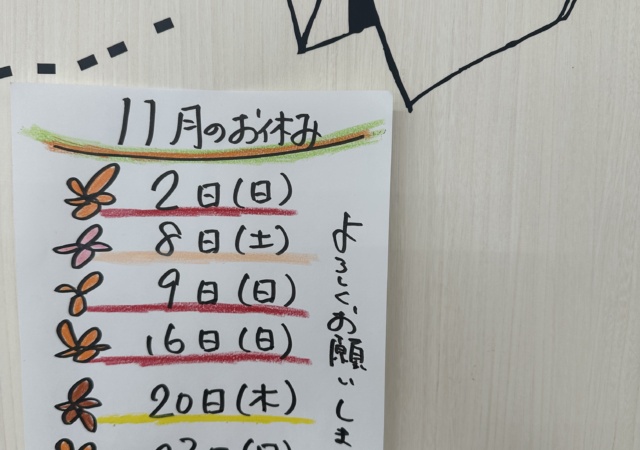 11月のお休み
2日(日)
8日(土)
9日(日)
16日(日)
20日(木)
よろしくお願いしま